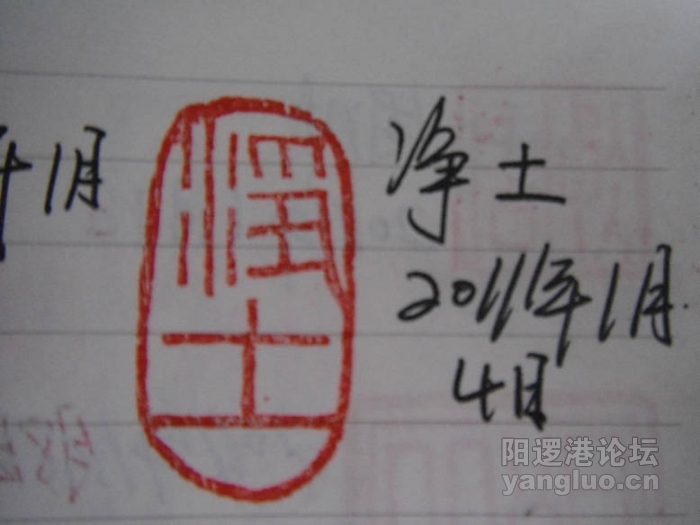 1月
土
净土
2011年1月
4日
阳逻港论坛
yangluo.cn